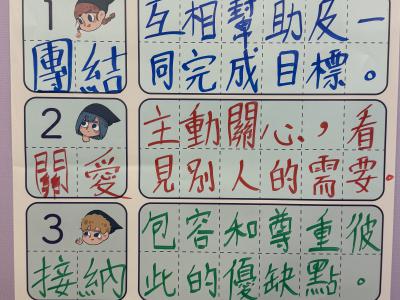 1
團結
互相幫助及一
同完成目標。
2
關愛
主動關心，看
見別人的需要。
3
接納
包容和尊重彼
此的優缺點。